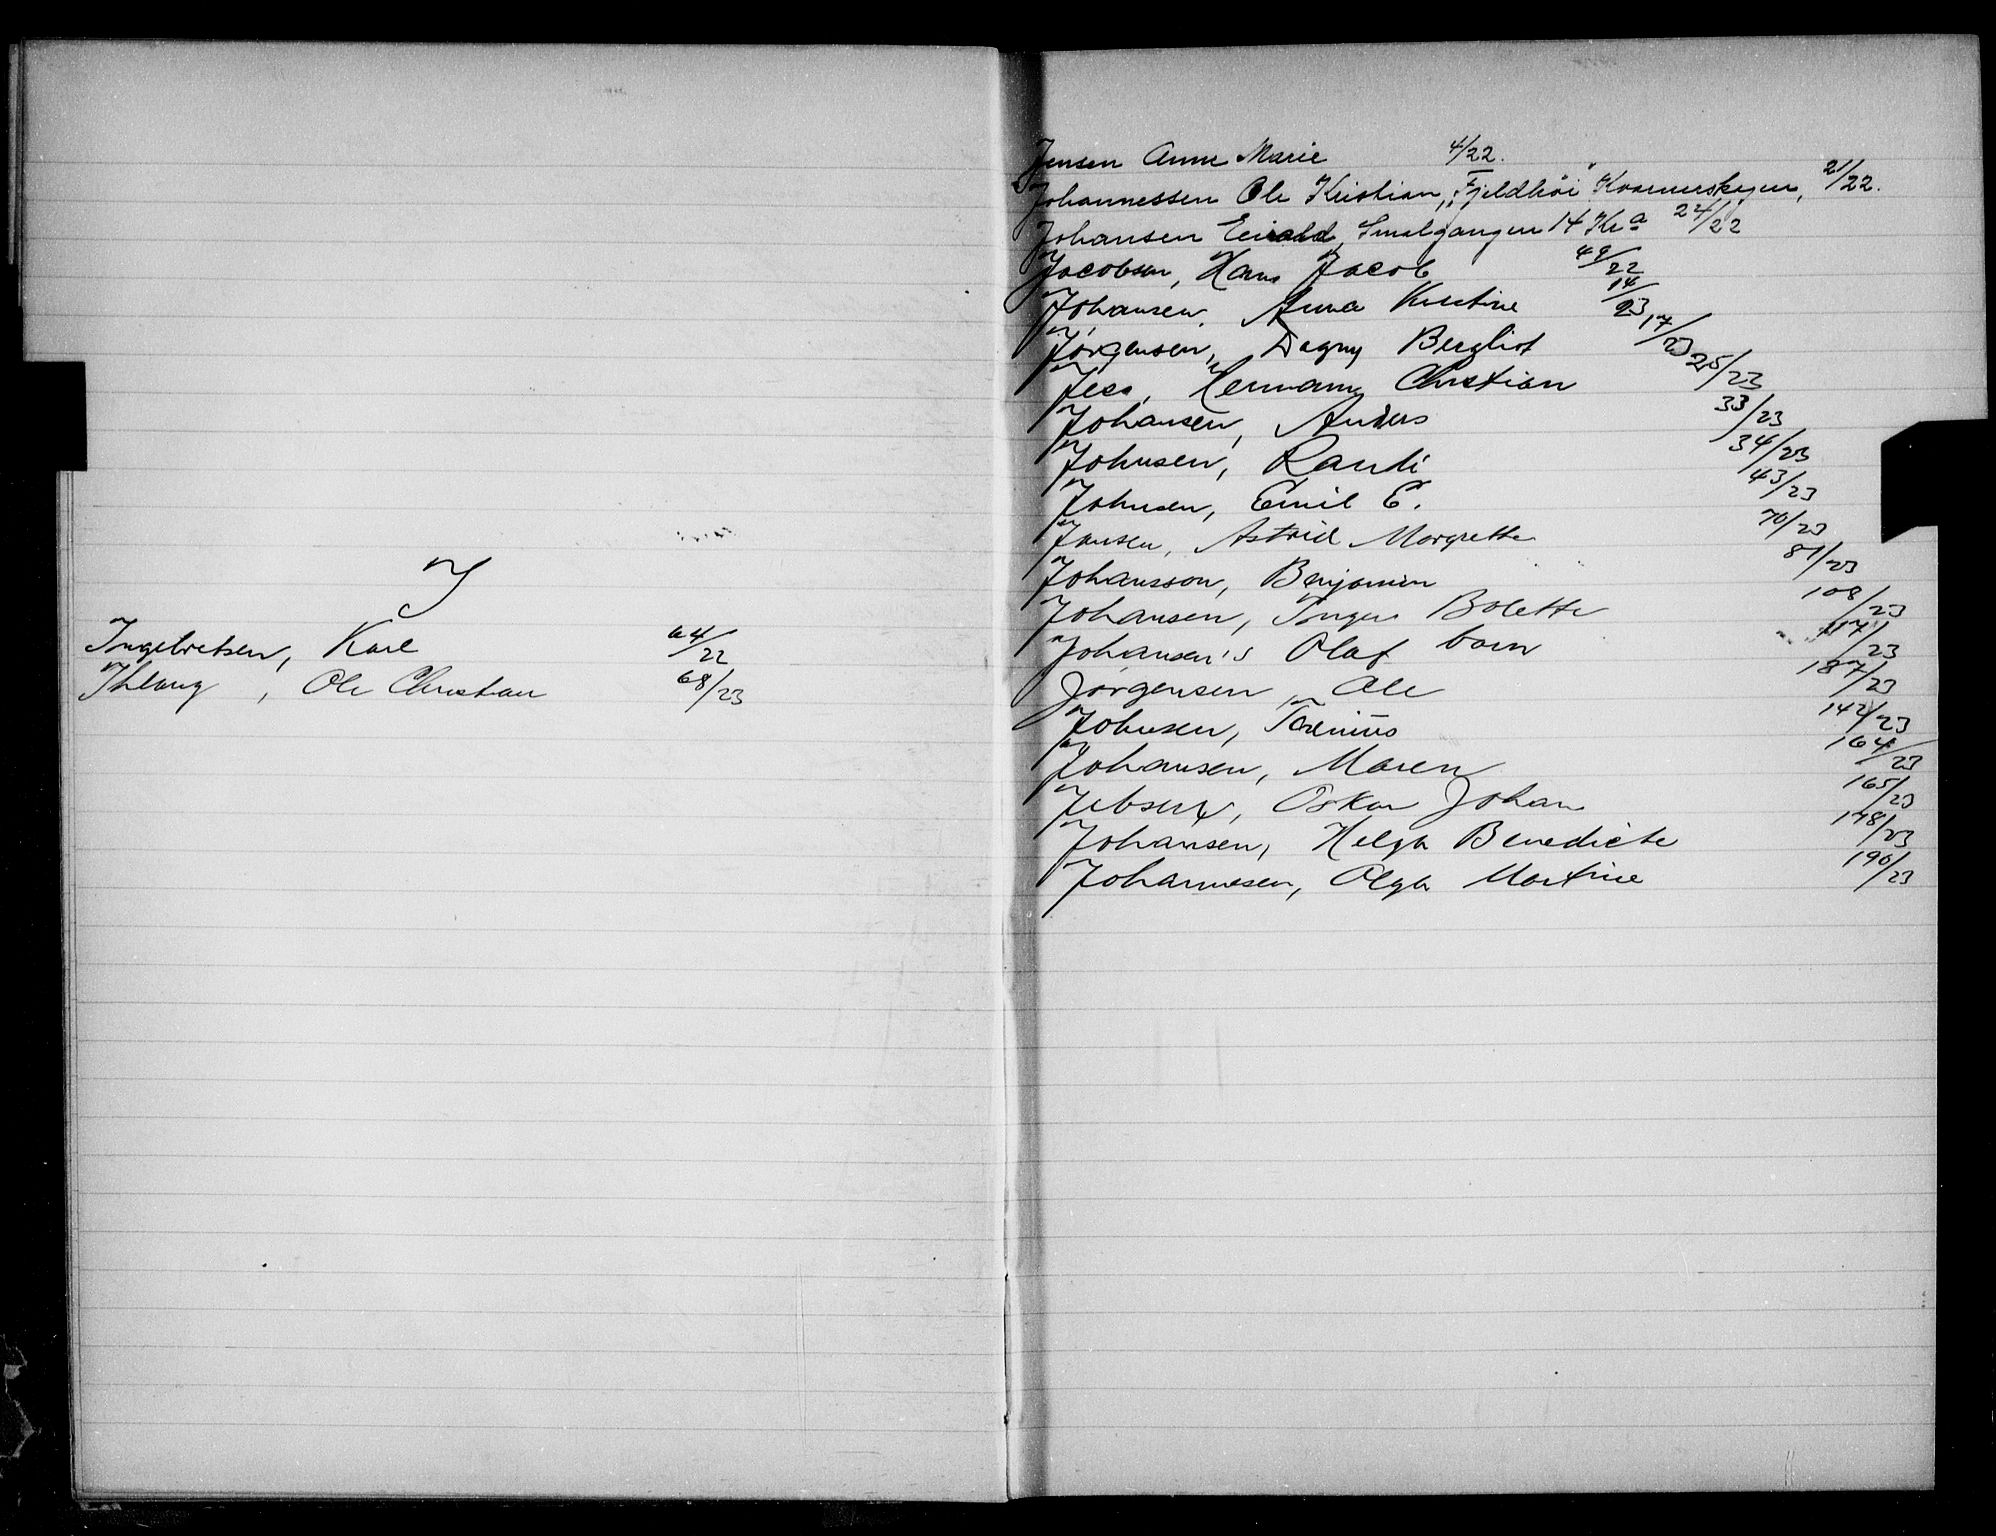 I
Ingebretsen, Karl 64/22
Ihlang, Ole Christian 68/23
Jensen Anne Marie 4/22.
Johannessen Ole Kristian, „Fjeldhöi" Kværnerskogen, 21/22.
Johansen Eivald, Smalgangen 14 Kr.a 24/22
Jacobsen, Hans Jacob 49/22
Johansen, Anna Kristine 14/23
Jörgensen, Dagny Bergliot 17/23
Jess, Hermann Christian 25/23
Johansen, Anders 33/23
Johnsen, Randi 34/23
Johnsen, Emil E. 43/23
Jansen, Astrid Margrethe 70/23
Johansson, Benjamin 81/23
Johansen, Inger Bolette 108/23
Johansen's Olaf barn 117/23
Jörgensen, Ole 137/23
Johnsen, 142/23
Johansen, Maren 164/23
Jebsen, Oskar Johan 165/23
Johansen, Helga Benedicte 178/23
Johannesen, Olga Martine 190/23